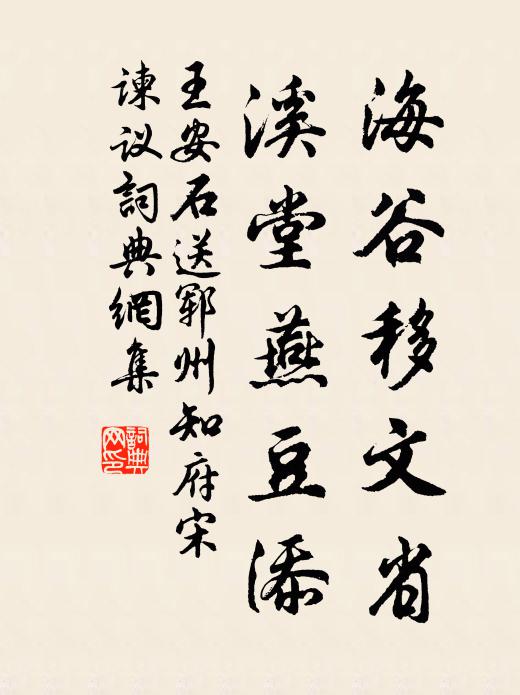 海谷移文省
溪堂燕豆添
王安石送郓州知府宋
谏议詞典網集
詞典
网印